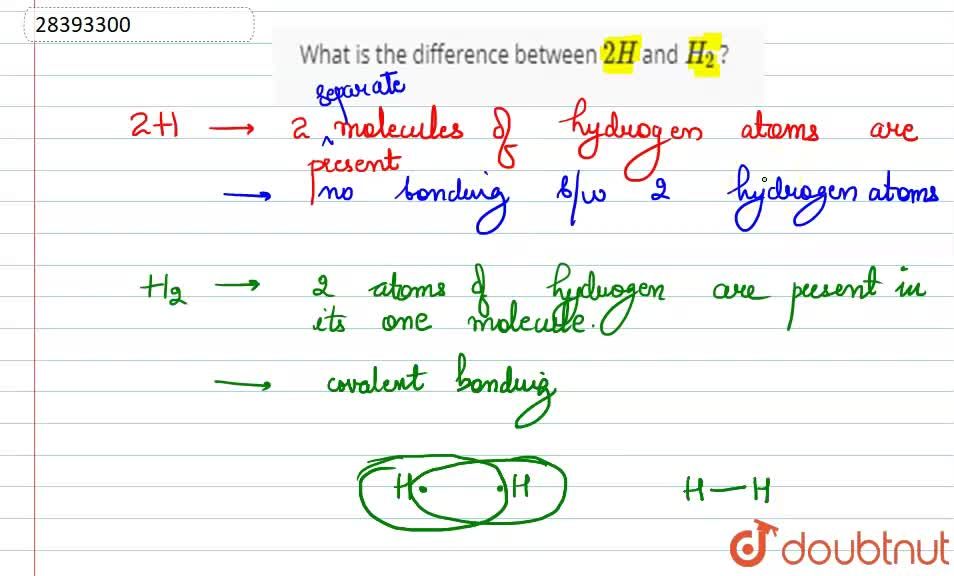 28393300
What is the difference between 2H and H₂?
separate
2H → 2 ^ molecules of hydrogen atoms are
present
→ no bonding b/w 2 hydrogen atoms
H₂ → 2 atoms of hydrogen are present in
its one molecule.
→ covalent bonding
H· ·H H—H
doubtnut